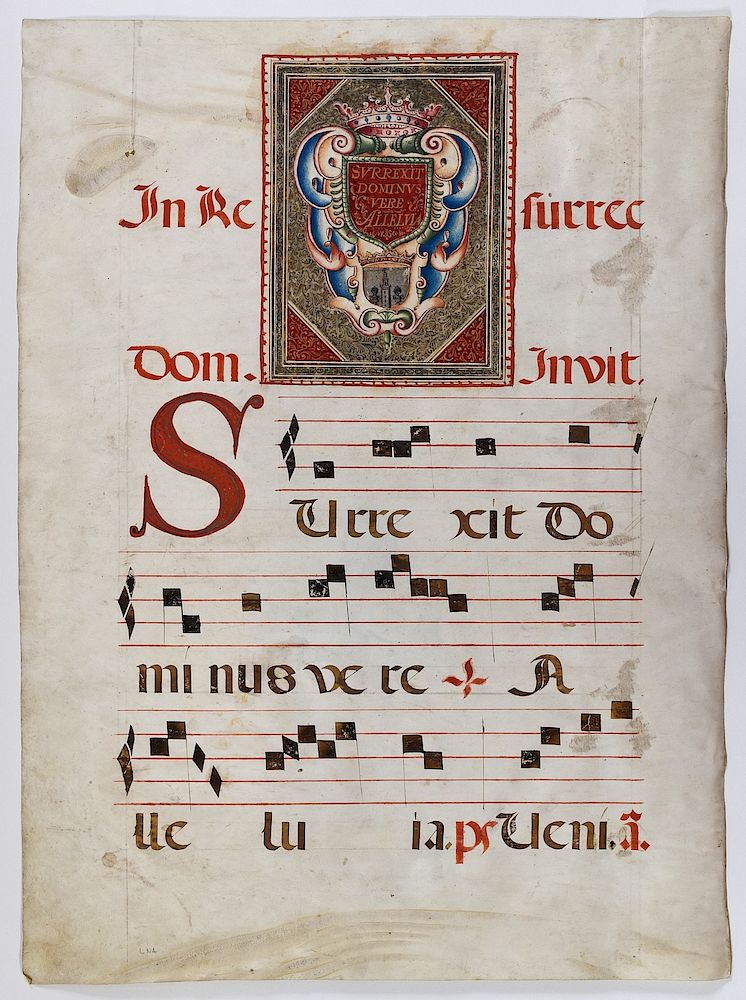 SVRREXIT
DOMINVS
VERE
ALLELVI
In Re surrec
Dom. Invit.
SUrre xit Do
mi nus ve re A
lle lu ia. ps Ueni. ã.